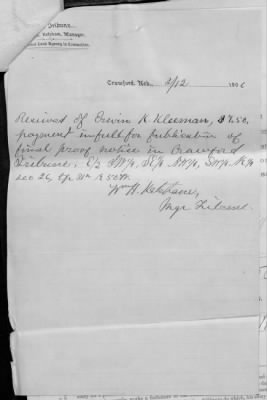 Tribune.
Ketcham, Manager.
Land Agency in Connection.
Crawford, Neb. 2/12 1906
Recived of Erwin K Kleeman, $7.50,
payment in full for publication of
final proof notice in Crawford
Tribune. E½ SW¼, SE¼ NW¼, SW¼ NE¼
sec 26, tp 31n R 50W.
Wm H. Ketcham,
Mgr Tribune